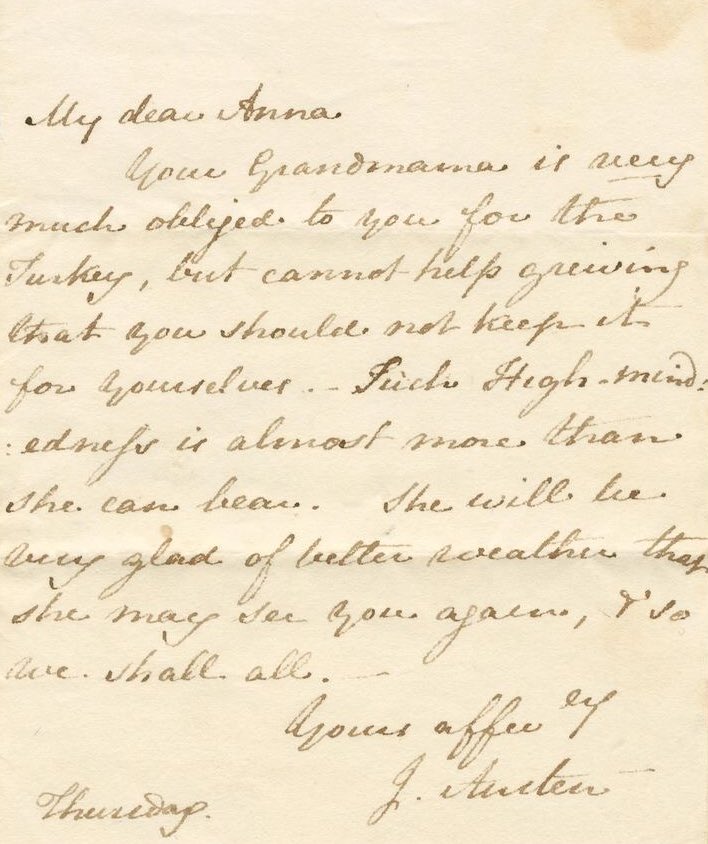 My dear Anna
Your Grandmama is very
much obliged to you for the
Turkey, but cannot help greiving
that you should not keep it
for Yourselves. – Such High-mind:
:edness is almost more than
she can bear. She will be
very glad of better weather that
she may see you again, & so
we shall all. —
Yours affec^ly
J. Austen
Thursday.